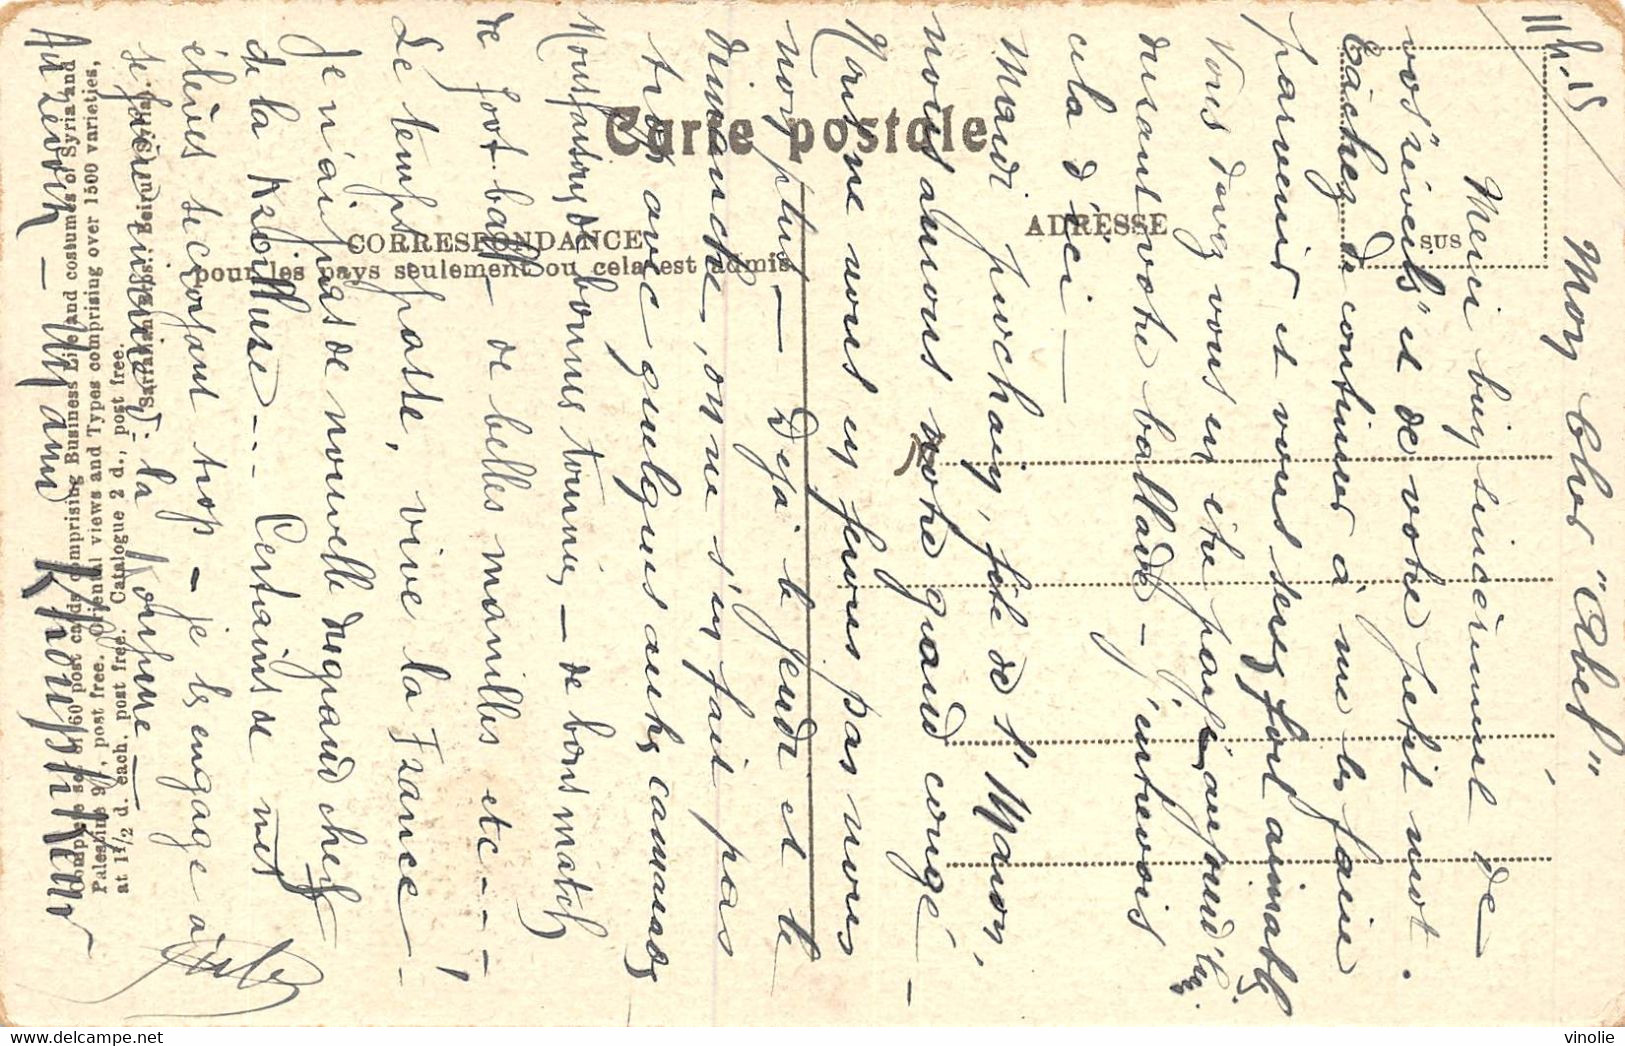 11.4.15
Mon Cher "Abel"
Merci bien sincèrement de
vos "réveils" et de votre petit mot.
Tâchez de continuer à me les faire
parvenir et vous serez fort aimable.
Vous devez vous en être payé aujourd'hui
durant votre ballade - j'entrevois
cela d'ici —
Mardi prochain, fête de St Maron,
nous aurons notre grand congé -
Nous ne vous en ferons pas nous
non plus — Déjà le jeudi et le
dimanche, on ne s'en fait pas
trop avec quelques autres camarades
Nous faisons de bonnes tournées - de bons matchs
de foot-ball - de belles manilles etc - - - -
Le temps passe, vive la France - !
Je n'ai pas de nouvelle du grand chef
de la - - - Certains de mes
élèves se croisant trop - je les engage à
se faire : la
Azeoth — Un ami
Carte postale
CORRESPONDANCE
pour les pays seulement ou cela est admis
ADRESSE
SUS
Sarrafian Bros. Beirut (Syria).
Complete set of 60 post cards comprising Business Life and costumes of Syria and
Palestine 9/, post free. Oriental views and Types comprising over 1500 varieties,
at 1 1/2 d. each, post free. Catalogue 2 d., post free.
vinolie